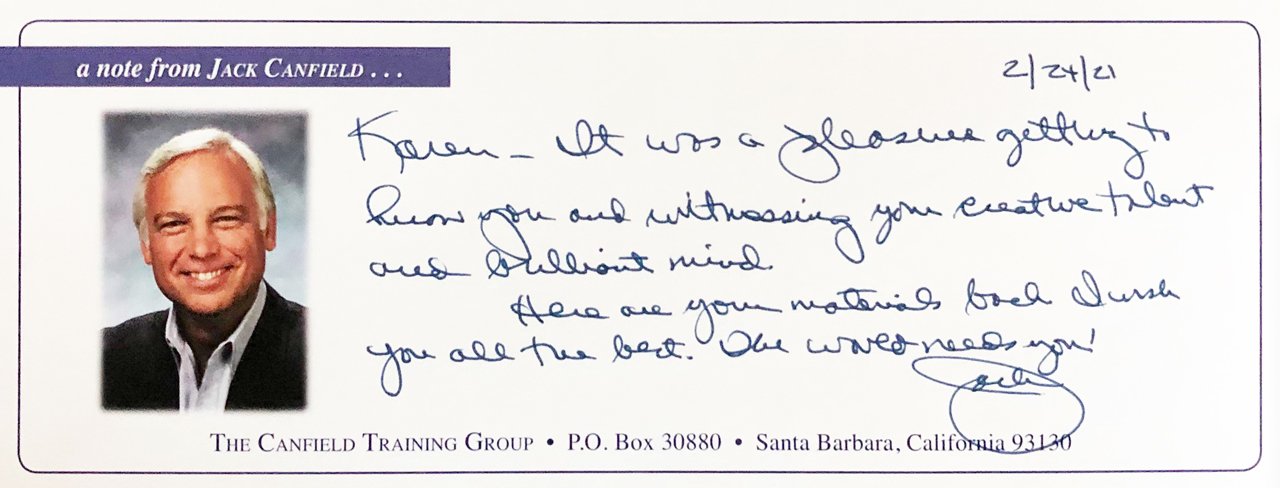 a note from JACK CANFIELD . . .
2/24/21
Karen - It was a pleasure getting to
know you and witnessing your creative talent
and brilliant mind.
Here are your materials back I wish
you all the best. The world needs you!
Jack
THE CANFIELD TRAINING GROUP • P.O. Box 30880 • Santa Barbara, California 93130